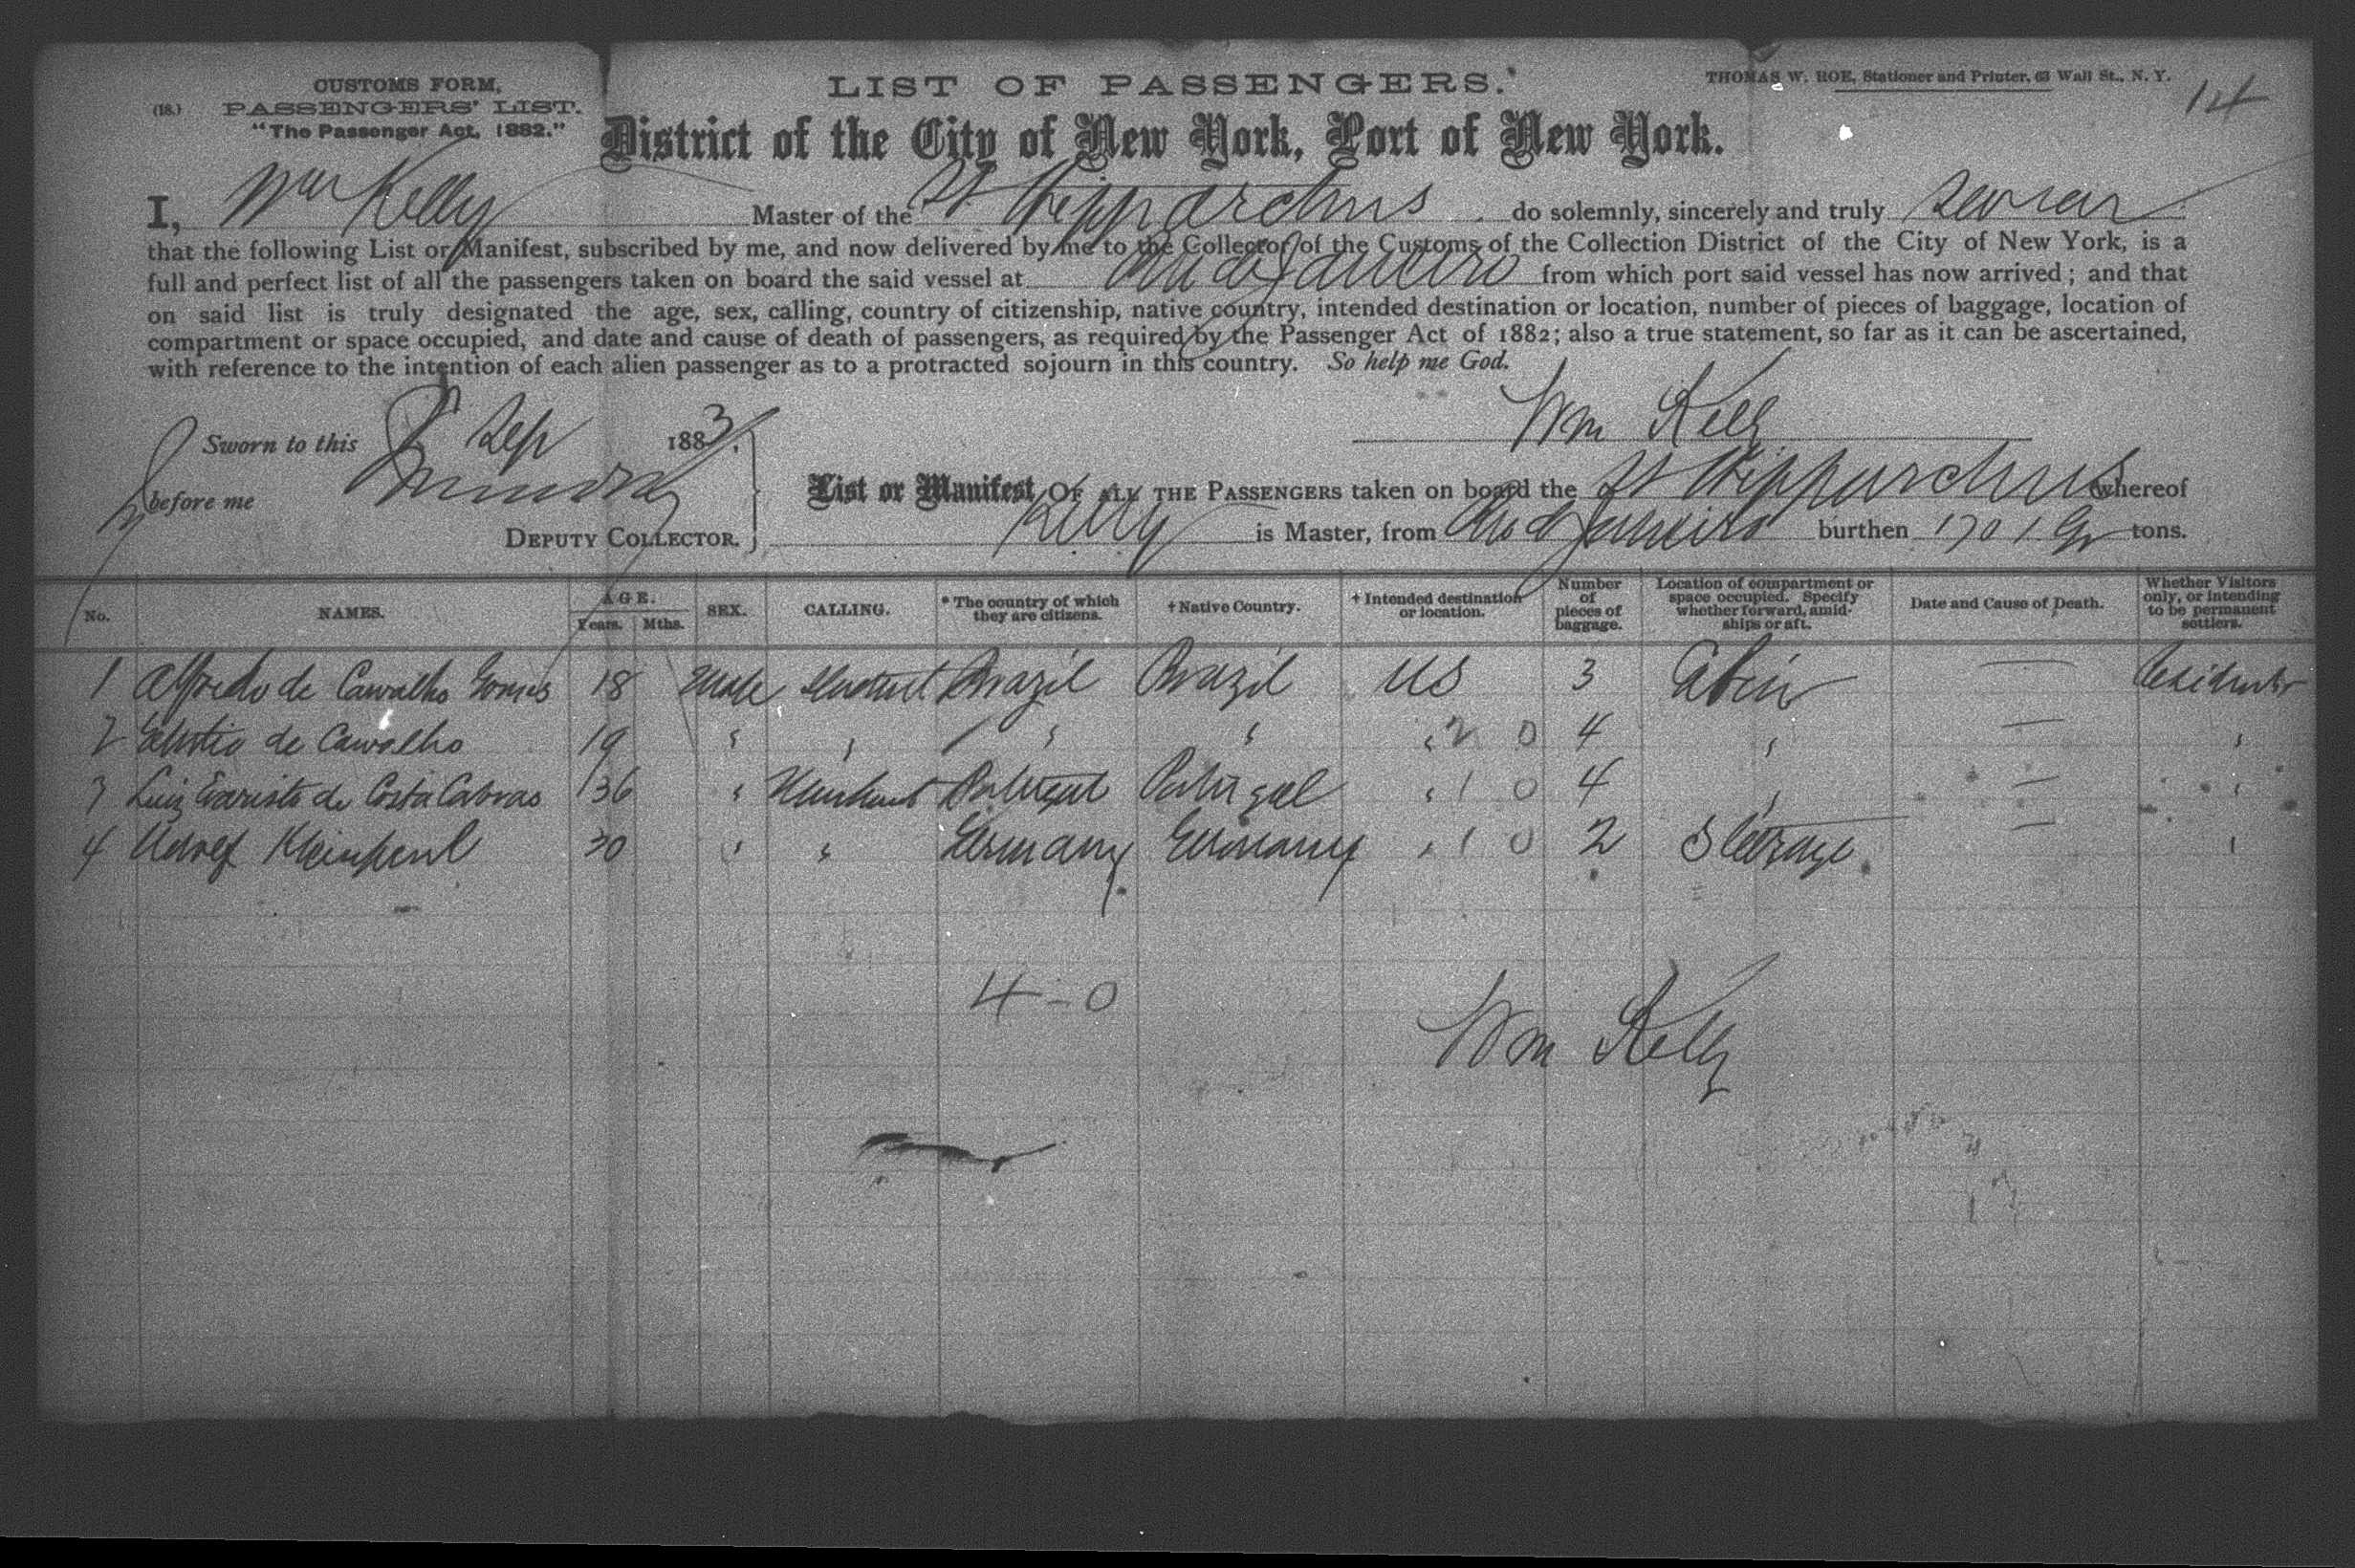 CUSTOMS FORM,
(18.) PASSENGERS' LIST.
"The Passenger Act, 1882."
LIST OF PASSENGERS.
THOMAS W. ROE, Stationer and Printer, 63 Wall St., N. Y.
14
District of the City of New York, Port of New York.
I, Wm Kelly Master of the St Hipparchus do solemnly, sincerely and truly swear
that the following List or Manifest, subscribed by me, and now delivered by me to the Collector of the Customs of the Collection District of the City of New York, is a
full and perfect list of all the passengers taken on board the said vessel at Rio de Janeiro from which port said vessel has now arrived; and that
on said list is truly designated the age, sex, calling, country of citizenship, native country, intended destination or location, number of pieces of baggage, location of
compartment or space occupied, and date and cause of death of passengers, as required by the Passenger Act of 1882; also a true statement, so far as it can be ascertained,
with reference to the intention of each alien passenger as to a protracted sojourn in this country. So help me God.
Wm Kelly
Sworn to this Sep 1883.
before me
DEPUTY COLLECTOR.
List or Manifest OF ALL THE PASSENGERS taken on board the St Hipparchus whereof
Kelly is Master, from Rio d Janeiro burthen 1701 tons.
No. NAMES. AGE. Years. Mths. SEX. CALLING. * The country of which they are citizens. † Native Country. † Intended destination or location. Number of pieces of baggage. Location of compartment or space occupied. Specify whether forward, amidships or aft. Date and Cause of Death. Whether Visitors only, or intending to be permanent settlers.
1 Alfredo de Carvalho Gomes 18 Male Student Brazil Brazil US 3 Cabin — Residents
2 de Carvalho 19 " " " " " 2 0 4 " — "
3 Luiz Evaristo de Costa Cabras 36 " Merchant Portugal Portugal " 1 0 4 " — "
4 Adolf 30 " " Germany Germany " 1 0 2 Steerage — "
4-0
Wm Kelly